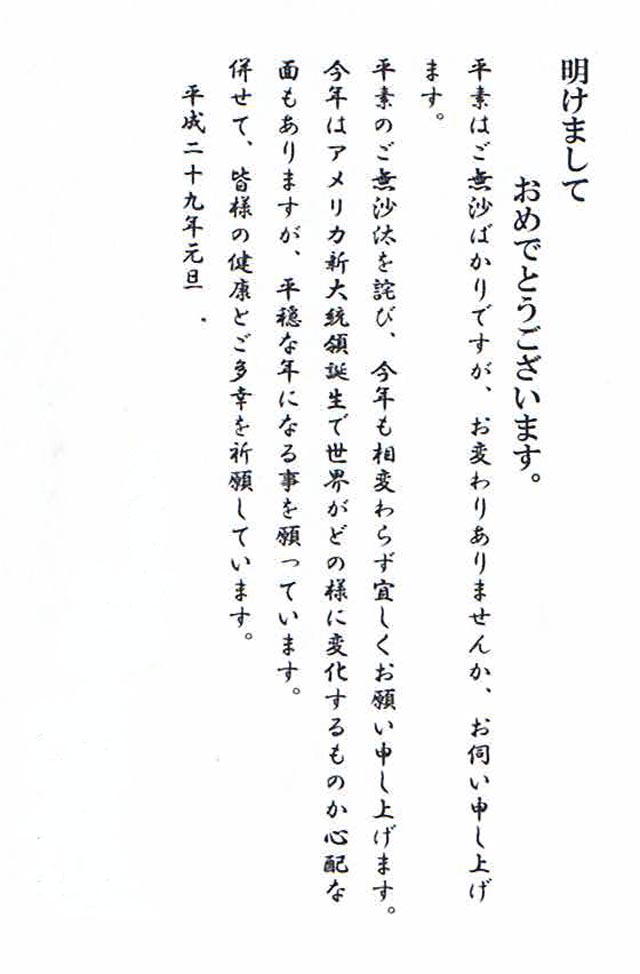 明けまして
おめでとうございます。
平素はご無沙ばかりですが、お変わりありませんか、お伺い申し上げ
ます。
平素のご無沙汰を詫び、今年も相変わらず宜しくお願い申し上げます。
今年はアメリカ新大統領誕生で世界がどの様に変化するものか心配な
面もありますが、平穏な年になる事を願っています。
併せて、皆様の健康とご多幸を祈願しています。
平成二十九年元旦